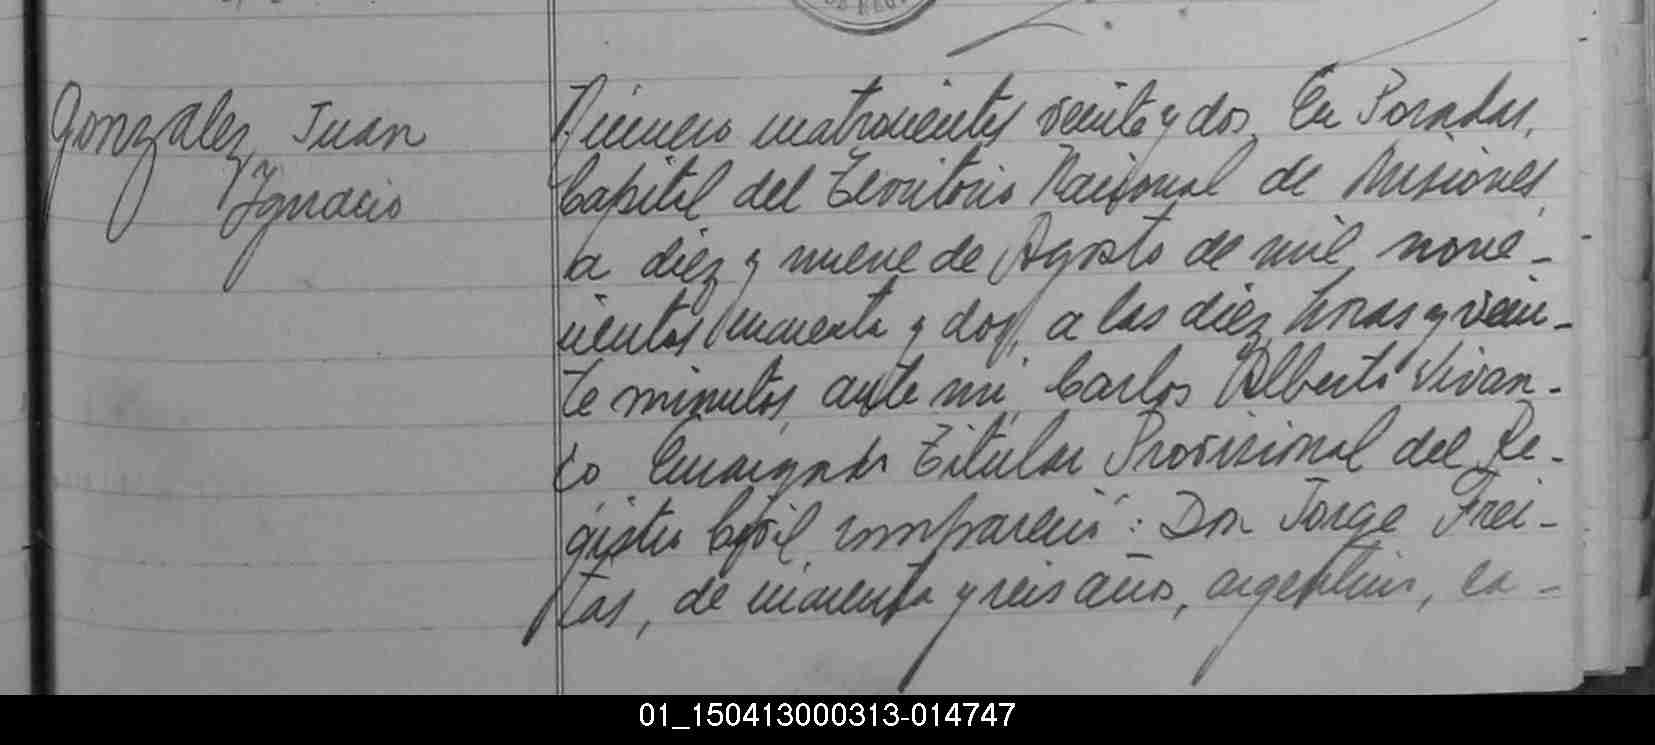 Gonzalez Juan
Ignacio
Número cuatrocientos veinte y dos. En Posadas,
Capital del Territorio Nacional de Misiones,
a diez y nueve de Agosto de mil nove-
cientos cuarenta y dos, a las diez horas y vein-
te minutos, ante mi, Carlos Alberto Vivan-
co Encargado Titular Provisional del Re-
gistro Civil compareció: Don Jorge Frei-
tas, de cuarenta y seis años, argentino, ca-
01_150413000313-014747